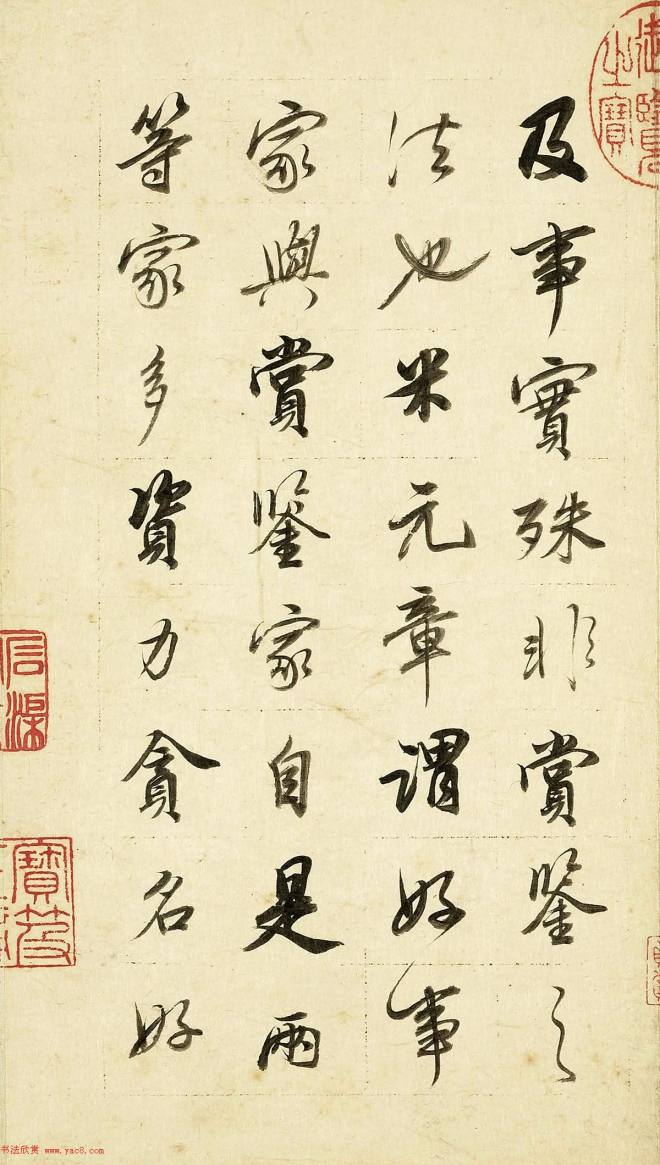 及事實殊非賞鑒之
法也米元章謂好事
家與賞鑒家自是兩
等家多資力貪名好
御覽之寶
書法欣赏 www.yac8.com